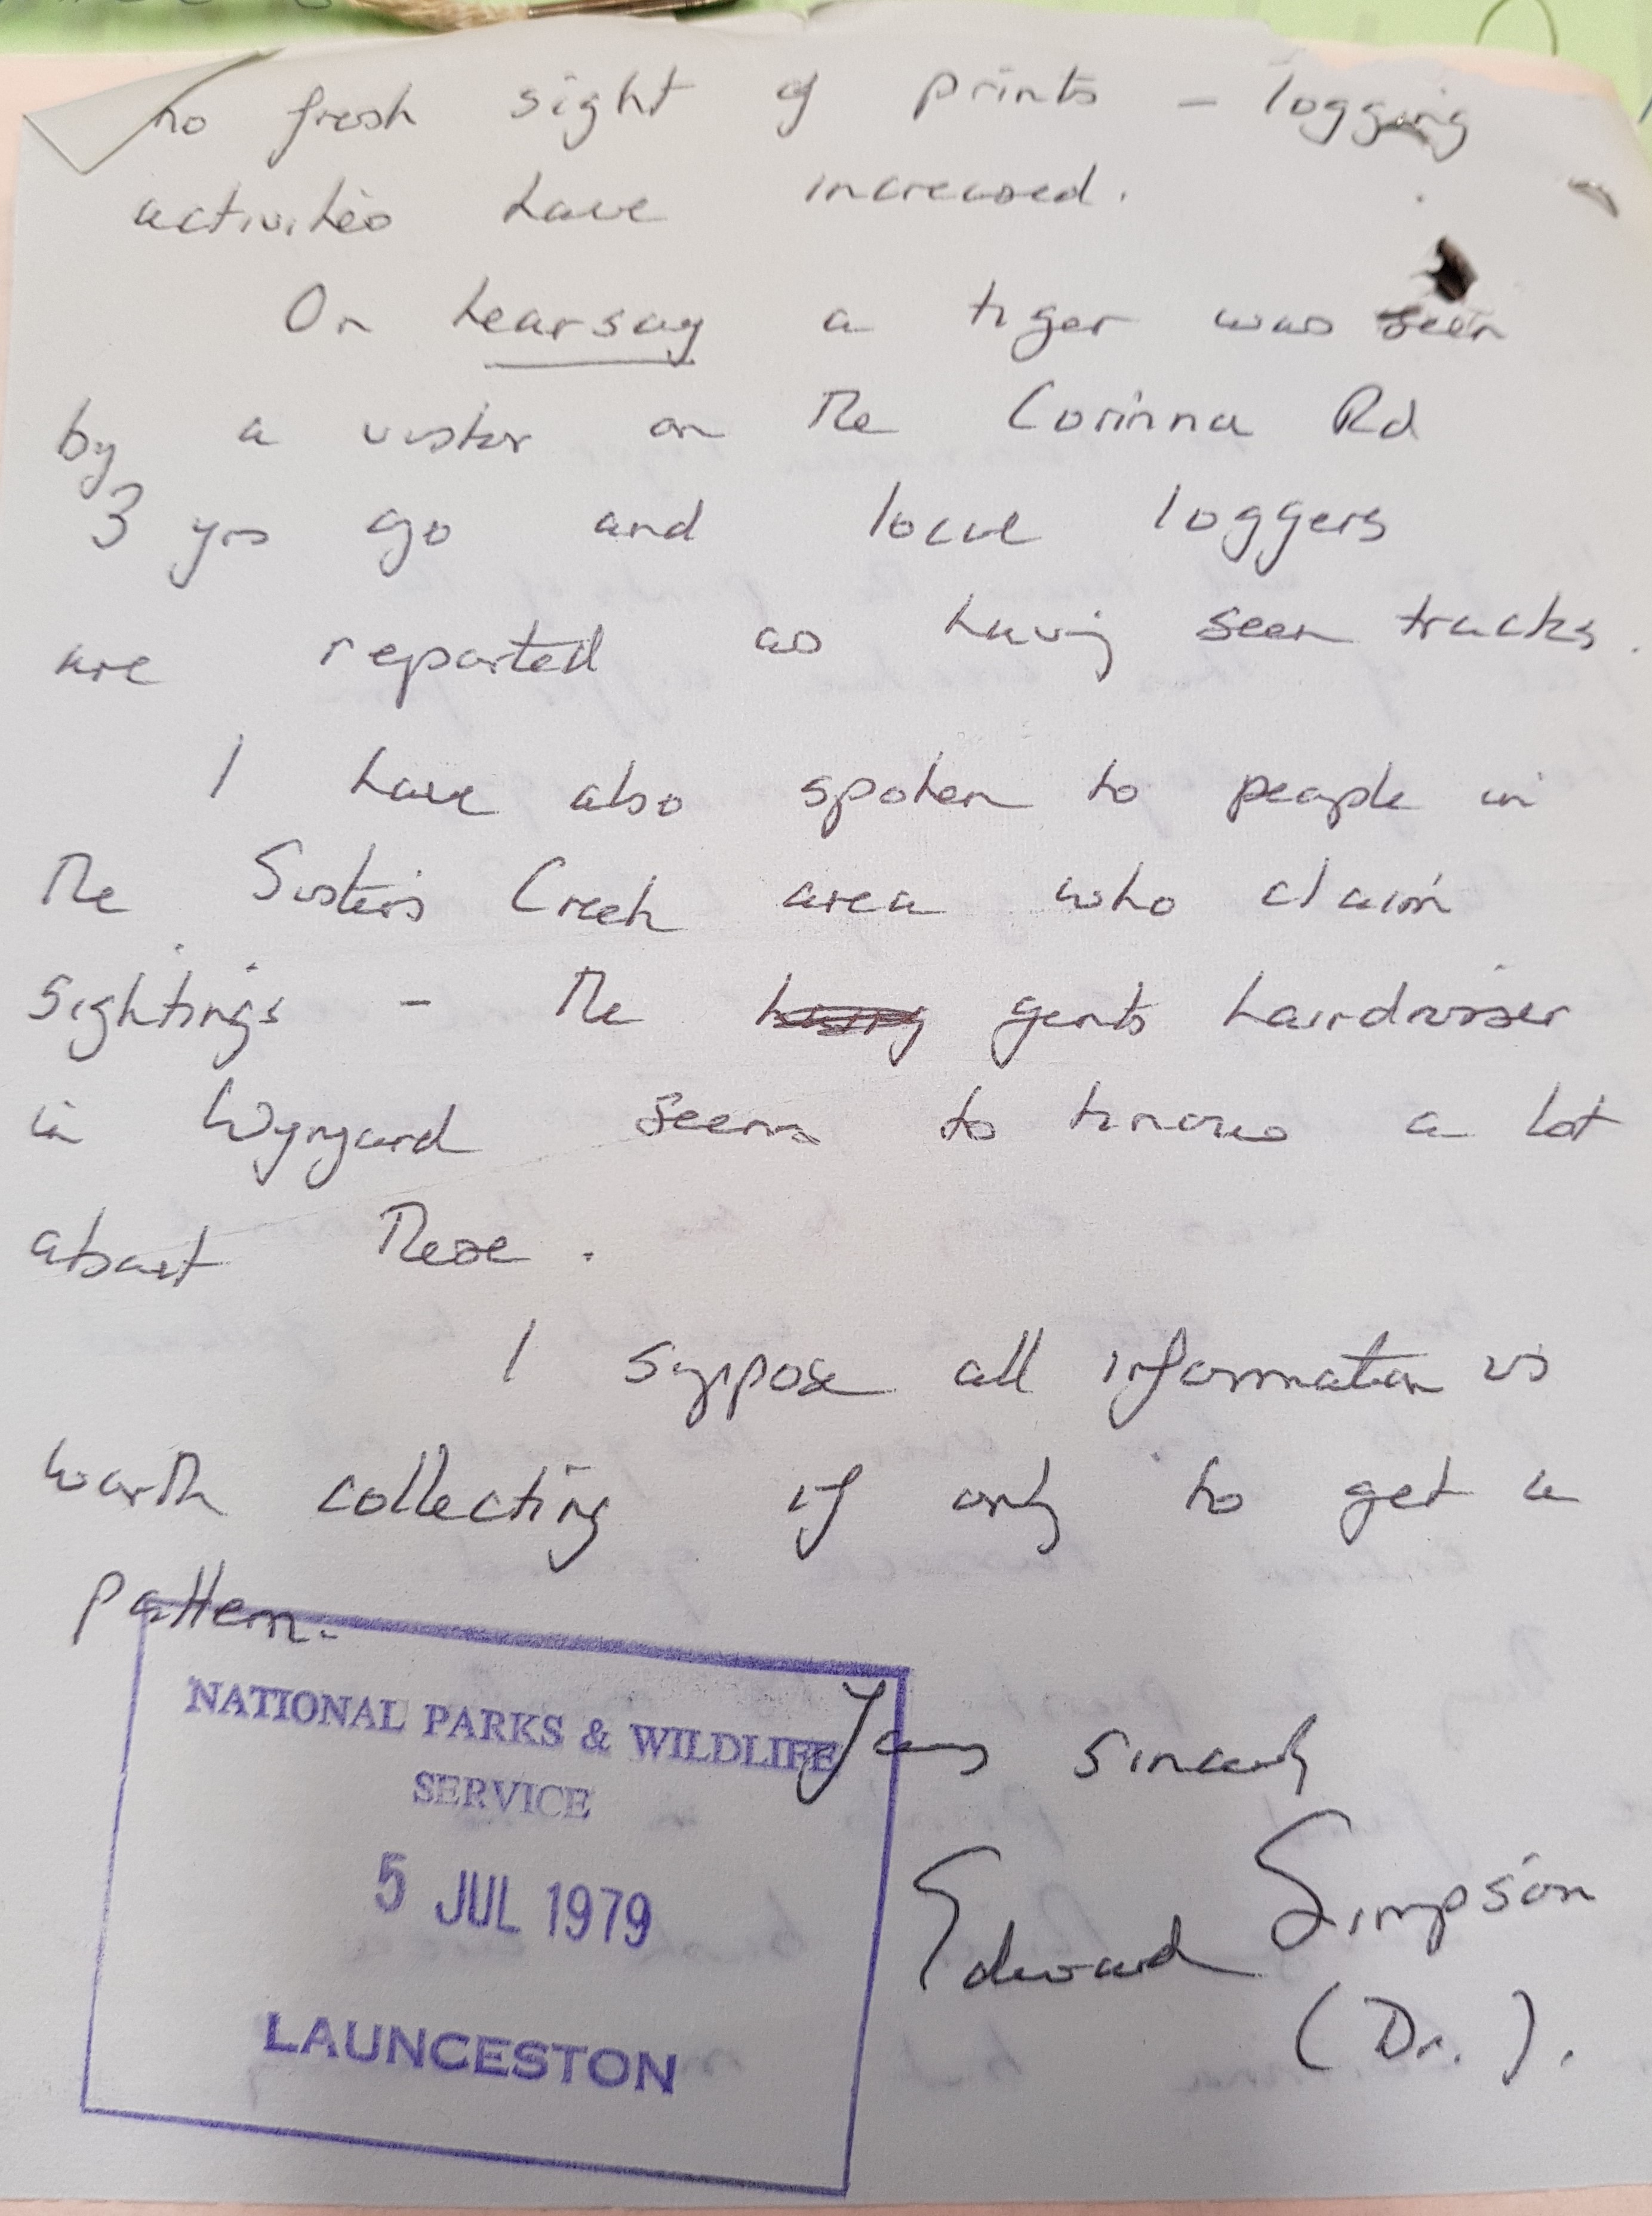 no fresh sight of prints - logging
activities have increased.
On hearsay a tiger was seen
by a visitor on the Corinna Rd
3 yrs go and local loggers
are reported as having seen tracks.
I have also spoken to people in
the Sisters Creek area who claim
sightings - the gents hairdresser
in Wynyard seems to know a lot
about these.
I suppose all information is
worth collecting if only to get a
pattern.
Yours sincerely
Edward Simpson
(Dr.).
NATIONAL PARKS & WILDLIFE
SERVICE
5 JUL 1979
LAUNCESTON